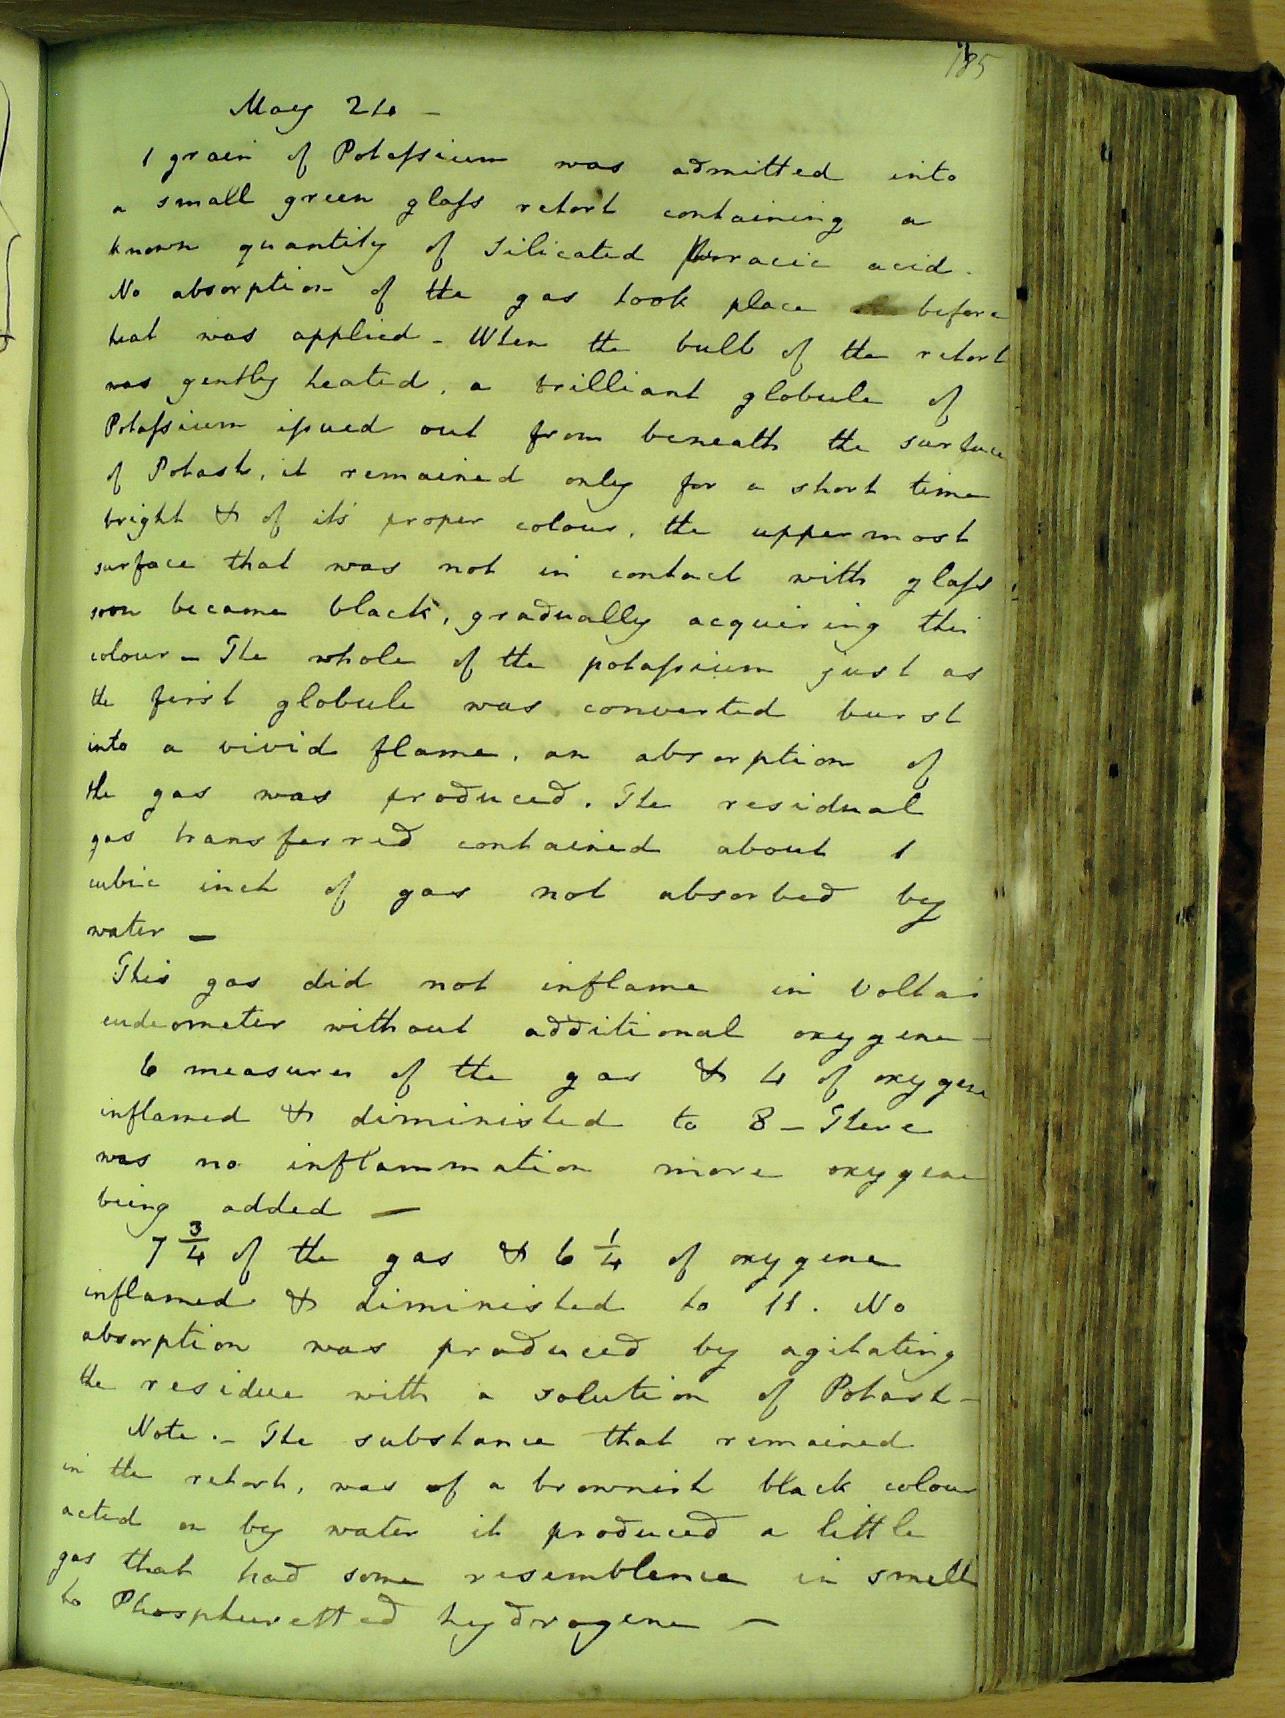 185
May 24 -
1 grain of Potassium was admitted into
a small green glass retort containing a
known quantity of Silicated fluoracic acid.
No absorption of the gas took place before
heat was applied - When the bulb of the retort
was gently heated, a brilliant globule of
Potassium issued out from beneath the surface
of Potash, it remained only for a short time
bright & of its proper colour, the uppermost
surface that was not in contact with glass
soon became black, gradually acquiring this
colour - The whole of the potassium just as
the first globule was converted burst
into a vivid flame, an absorption of
the gas was produced. The residual
gas transferred contained about 1
cubic inch of gas not absorbed by
water -
This gas did not inflame in Voltas
eudeometer without additional oxygene -
6 measures of the gas & 4 of oxygene
inflamed & diminished to 8 - There
was no inflammation more oxygene
being added -
7 3/4 of the gas & 6 1/4 of oxygene
inflamed & diminished to 11. No
absorption was produced by agitating
the residue with a solution of Potash -
Note. - The substance that remained
in the retort, was of a brownish black colour
acted on by water it produced a little
gas that had some resemblence in smell
to Phosphuretted hydrogene -